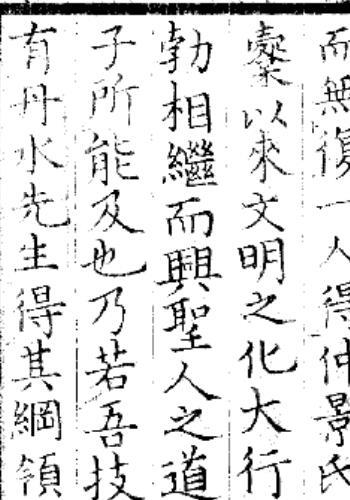 而無復一人得仲景氏
櫜以來文明之化大行
勃相繼而興聖人之道
子所能及也乃若吾技
有丹水先生得其綱領